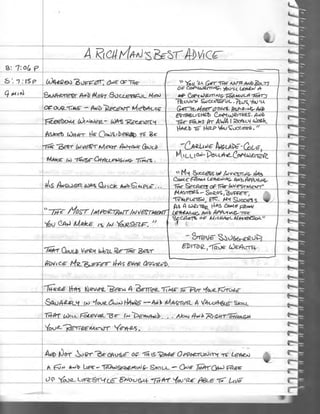 A RICH MAN'S BEST ADVICE
8:7:06 P
8:7:15 P
9 MIN
WARREN BUFFETT, ONE OF THE
SMARTEST AND MOST SUCCESSFUL MEN
OF OUR TIME - AND RECENT MEDAL OF
FREEDOM WINNER - WAS RECENTLY
ASKED WHAT HE CONSIDERED TO BE
THE BEST INVESTMENT ANYONE COULD
MAKE IN THESE CHALLENGING TIMES.
HIS ANSWER WAS QUICK AND SIMPLE...
"THE MOST IMPORTANT INVESTMENT
YOU CAN MAKE IS IN YOURSELF."
THAT COULD VERY WELL BE THE BEST
ADVICE MR. BUFFETT HAS EVER OFFERED.
"YOU'LL GET THE NUTS AND BOLTS
OF COPYWRITING. YOU'LL LEARN A
COPYWRITING FORMULA THAT'S
SUCCESSFUL. PLUS, YOU'LL
GET TO MEET OTHER ASPIRING AND
ESTABLISHED COPYWRITERS. AND
THE FOLKS AT AWAI REALLY WORK
HARD TO HELP YOU SUCCEED."
- CAROLINE COLE,
MILLION-DOLLAR COPYWRITER
"MY SUCCESS IN INVESTING HAS
COME FROM LEARNING AND APPLYING
THE SECRETS OF THE INVESTMENT
MASTERS - SOROS, BUFFETT,
TEMPLETON, ETC. MY SUCCESS
AS A WRITER HAS COME FROM
LEARNING AND APPLYING THE
SECRETS OF MICHAEL MASTERSON."
- STEVE SJUGGERUD,
EDITOR, TRUE WEALTH
THERE HAS NEVER BEEN A BETTER TIME TO PUT YOUR FUTURE
SQUARELY IN YOUR OWN HANDS - AND MASTER A VALUABLE SKILL
THAT WILL FOREVER BE IN DEMAND... NOW AND RIGHT THROUGH
YOUR RETIREMENT YEARS.
AND NOT JUST BECAUSE OF THIS RARE OPPORTUNITY TO LEARN
A FUN AND LIFE-TRANSFORMING SKILL - ONE THAT CAN FREE
UP YOUR LIFESTYLE ENOUGH THAT YOU'RE ABLE TO LIVE